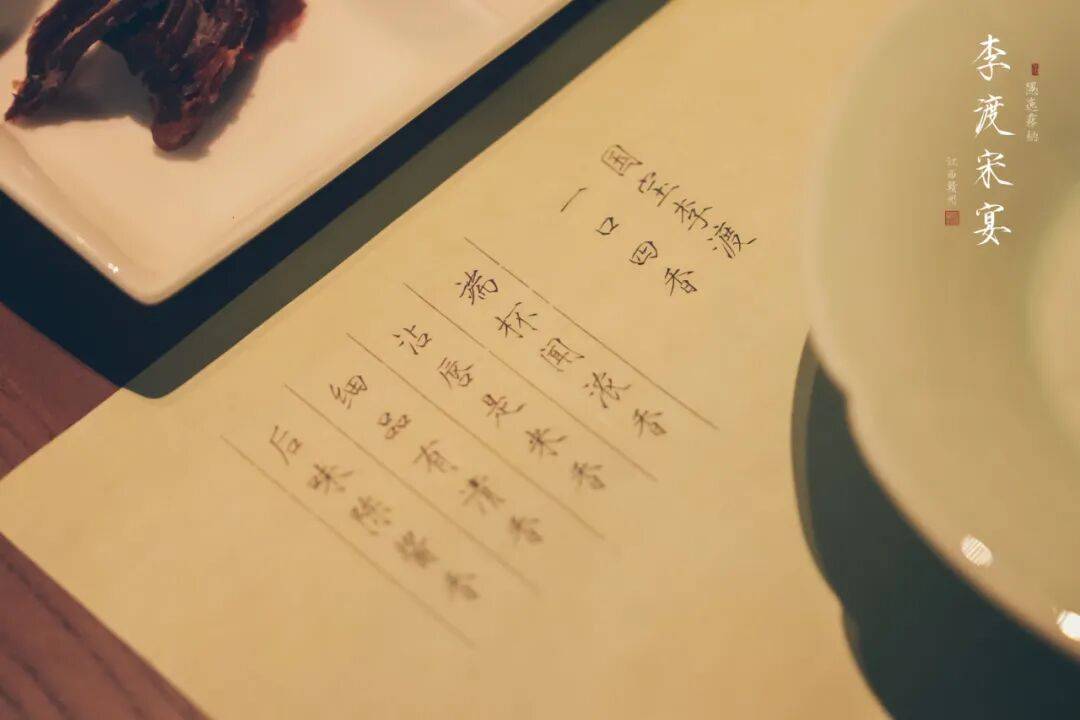 国宝李渡
一口四香
端杯闻浓香
沾唇是米香
细品有清香
后味陈酱香
李渡宋宴
江西赣州